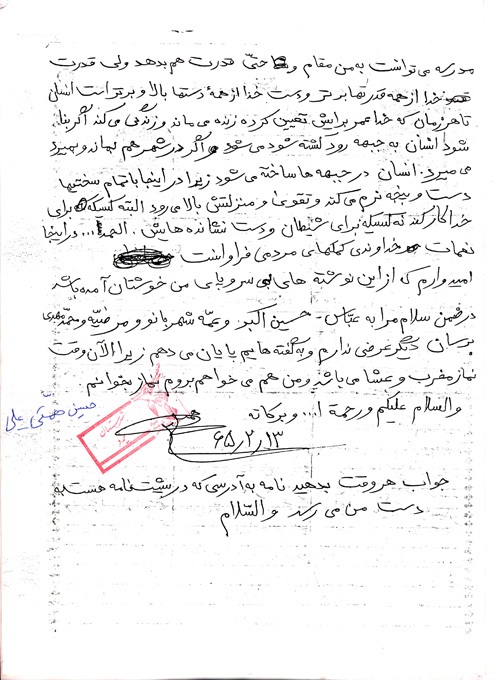 مدرسه می توانست به من مقام و حتّی قدرت هم بدهد ولی قدرت
خدا از همه قدرتها برتر و دست خدا از همهٔ دستها بالا و برتر است انسان
تا هر زمان که خدا عمر برایش تعیین کرده زنده می ماند و زندگی می کند اگر بنا
شود انسان به جبهه رود کشته شود می شود و اگر در شهر هم بماند و بمیرد
می میرد. انسان در جبهه ها ساخته می شود زیرا در اینجا با تمام سختیها
دست و پنجه نرم می کند و تقوی و منزلتش بالا می رود البته کسیکه برای
خدا کار کند نه کسیکه برای شیطان و دست نشانده هایش. الحمد ا... در اینجا
نعمات خداوندی کمکهای مردمی فراوانست
امیدوارم که از این نوشته های بی سر و پای من خوشتان آمده باشد
در ضمن سلام مرا به عبّاس - حسین اکبر و عمّه شهربانو و مرضیّه و محمّد مهدی
برسان دیگر عرضی ندارم و به گفته هایم پایان می دهم زیرا الآن وقت
نماز مغرب و عشا می باشد و من هم می خواهم بروم نماز بخوانم.
والسلام علیکم ورحمة ا... وبرکاته
حسین علی
۶۵/۲/۱۳
جواب هر وقت بدهید نامه به آدرسی که در پشت نامه هست به
دست من می رسد والسّلام